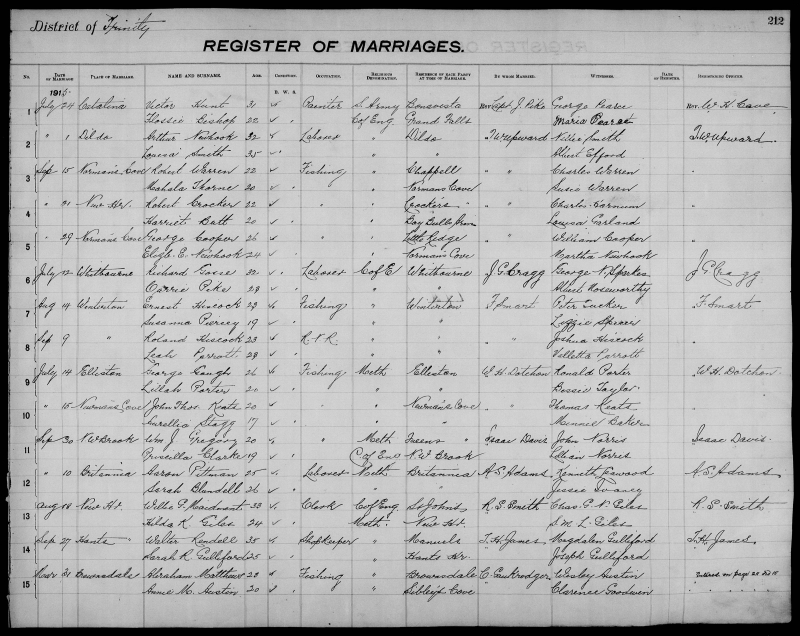 212
District of Trinity
REGISTER OF MARRIAGES.
No. DATE OF MARRIAGE PLACE OF MARRIAGE. NAME AND SURNAME. AGE. CONDITION. OCCUPATION. RELIGIOUS DENOMINATION. RESIDENCE OF EACH PARTY AT TIME OF MARRIAGE. BY WHOM MARRIED. WITNESSES. DATE OF REGISTRY. REGISTERING OFFICER.
1915 B. W. S.
1 July 24 Catalina Victor Hunt 31 Painter S. Army Bonavista Capt. J. Pike George Pearce Rev. W. H. Cave
Flossie Bishop 22 " C of Eng Grand Falls Maria Pearce
2 " 1 Dildo Arthur Newhook 32 Laborer " Dildo T. W. Upward Smith T. W. Upward
Louisa Smith 35 " " Albert Efford
3 Sep 15 Normans Cove Robert Warren 22 Fishing " Chappell " " Charles Warren "
Mahala Thorne 20 " " Normans Cove Susie Warren
4 " 21 New Hr. Robert Crocker 22 " " Crockers " " " Charles "
Harriet Butt 20 " " Bay Bulls Arm Louisa Garland
5 " 29 Normans Cove George Cooper 26 " " Little Ridge " " William Cooper "
E. Newhook 24 " " Normans Cove Martha Newhook
6 July 12 Whitbourne Richard Gosse 32 " Laborer C of E Whitbourne J. G. Cragg George N. Sparkes J. G. Cragg
Carrie Pike 28 " " " Albert Noseworthy
7 Aug 14 Winterton Ernest Hiscock 23 Fishing " Winterton F. Smart Peter Tucker F. Smart
Susanna Piercey 19 " " " Lizzie
8 Sep 9 " Roland Hiscock 23 " R.N.R. " " " " Joshua Hiscock "
Leah Parrott 28 " " " Parrott
9 July 14 Elliston George Gough 26 Fishing Meth Elliston W. H. Dotchon Ronald Porter W. H. Dotchon
Lillah Porter 20 " " " Bessie Taylor
10 " 15 Newmans Cove John Thos. Keats 20 " " Newman's Cove " " Thomas Keats "
Stagg 17 " " " Minnie Baker
11 Sep 30 N W Brook Wm J. Gregory 20 " Meth. Queens " Isaac Davis John Norris Isaac Davis.
Priscilla Clarke 19 " C of Eng N.W. Brook Norris
12 " 10 Britannia Aaron Pittman 25 Laborer Meth Britannia A. S. Adams Kenneth A. S. Adams
Sarah Blundell 26 " " " Jessie
13 Aug 18 New Hr. Willis P. 33 Clerk C of Eng St. Johns R. S. Smith Chas. G. N. Giles R. S. Smith
Hilda K. Giles 24 " Meth. New Hr. Giles
14 Sep 27 Hants " Walter Rendell 35 Shopkeeper " Manuels T. H. James Magdalen Gulliford T. H. James
Sarah R Gulliford 25 " " Hants Hr. Joseph Gulliford
15 Mar 31 Brownsdale Abraham Matthews 23 Fishing " Brownsdale C. Wesley Austin Entered on page 28 No 15
Annie M. Austin 20 " " Sibleys Cove Clarence Goodwin